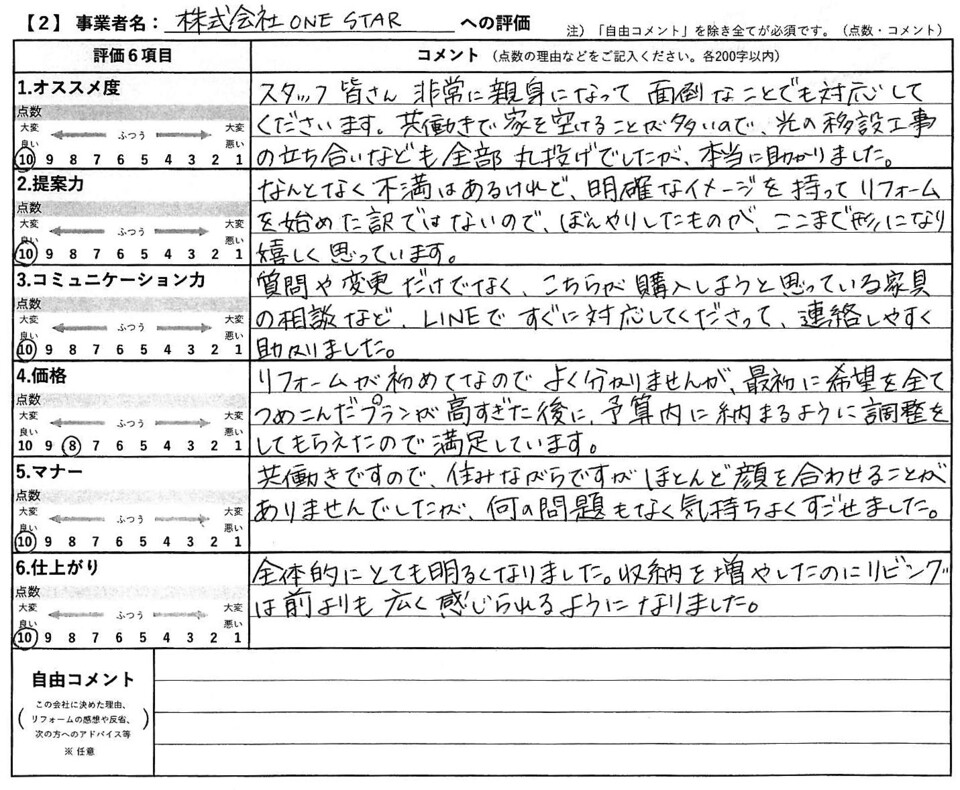 【2】事業者名： 株式会社 ONE STAR への評価
注）「自由コメント」を除き全てが必須です。（点数・コメント）
評価6項目 コメント （点数の理由などをご記入ください。各200字以内）
1.オススメ度
点数
大変良い ふつう 大変悪い
10 9 8 7 6 5 4 3 2 1
スタッフ皆さん 非常に親身になって 面倒なことでも対応して
くださいます。共働きで家を空けることが多いので、光の移設工事
の立ち合いなども全部 丸投げでしたが、本当に助かりました。
2.提案力
点数
大変良い ふつう 大変悪い
10 9 8 7 6 5 4 3 2 1
なんとなく不満はあるけれど、明確なイメージを持ってリフォーム
を始めた訳ではないので、ぼんやりしたものが、ここまで形になり
嬉しく思っています。
3.コミュニケーション力
点数
大変良い ふつう 大変悪い
10 9 8 7 6 5 4 3 2 1
質問や変更だけでなく、こちらが購入しようと思っている家具
の相談など、LINEですぐに対応してくださって、連絡しやすく
助かりました。
4.価格
点数
大変良い ふつう 大変悪い
10 9 8 7 6 5 4 3 2 1
リフォームが初めてなのでよく分かりませんが、最初に希望を全て
つめこんだプランが高すぎた後に、予算内に納まるように調整を
してもらえたので満足しています。
5.マナー
点数
大変良い ふつう 大変悪い
10 9 8 7 6 5 4 3 2 1
共働きですので、住みながらですがほとんど顔を合わせることが
ありませんでしたが、何の問題もなく気持ちよくすごせました。
6.仕上がり
点数
大変良い ふつう 大変悪い
10 9 8 7 6 5 4 3 2 1
全体的にとても明るくなりました。収納を増やしたのにリビング
は前よりも広く感じられるようになりました。
自由コメント
（この会社に決めた理由、
リフォームの感想や反省、
次の方へのアドバイス等）
※ 任意